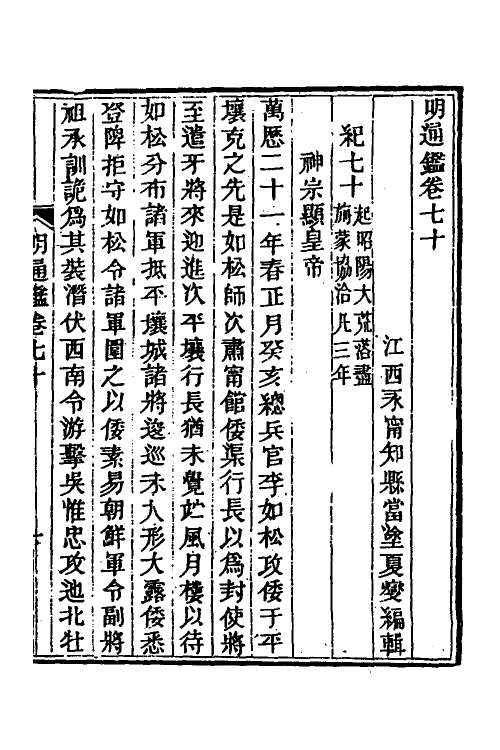 明通鑑卷七十
江西永甯知縣當塗夏燮編輯
紀七十起昭陽大荒落盡旃蒙協洽凡三年
神宗顯皇帝
萬厯二十一年春正月癸亥總兵官李如松攻倭于平
壤克之先是如松師次肅甯館倭渠行長以爲封使將
至遣牙將來迎進次平壤行長猶未覺屯風月樓以待
如松分布諸軍抵平壤城諸將逡巡未入形大露倭悉
登陴拒守如松令諸軍圍之以倭素易朝鮮軍令副將
祖承訓詭爲其裝潛伏西南令游擊吳惟忠攻迤北牡
明通鑑卷七十